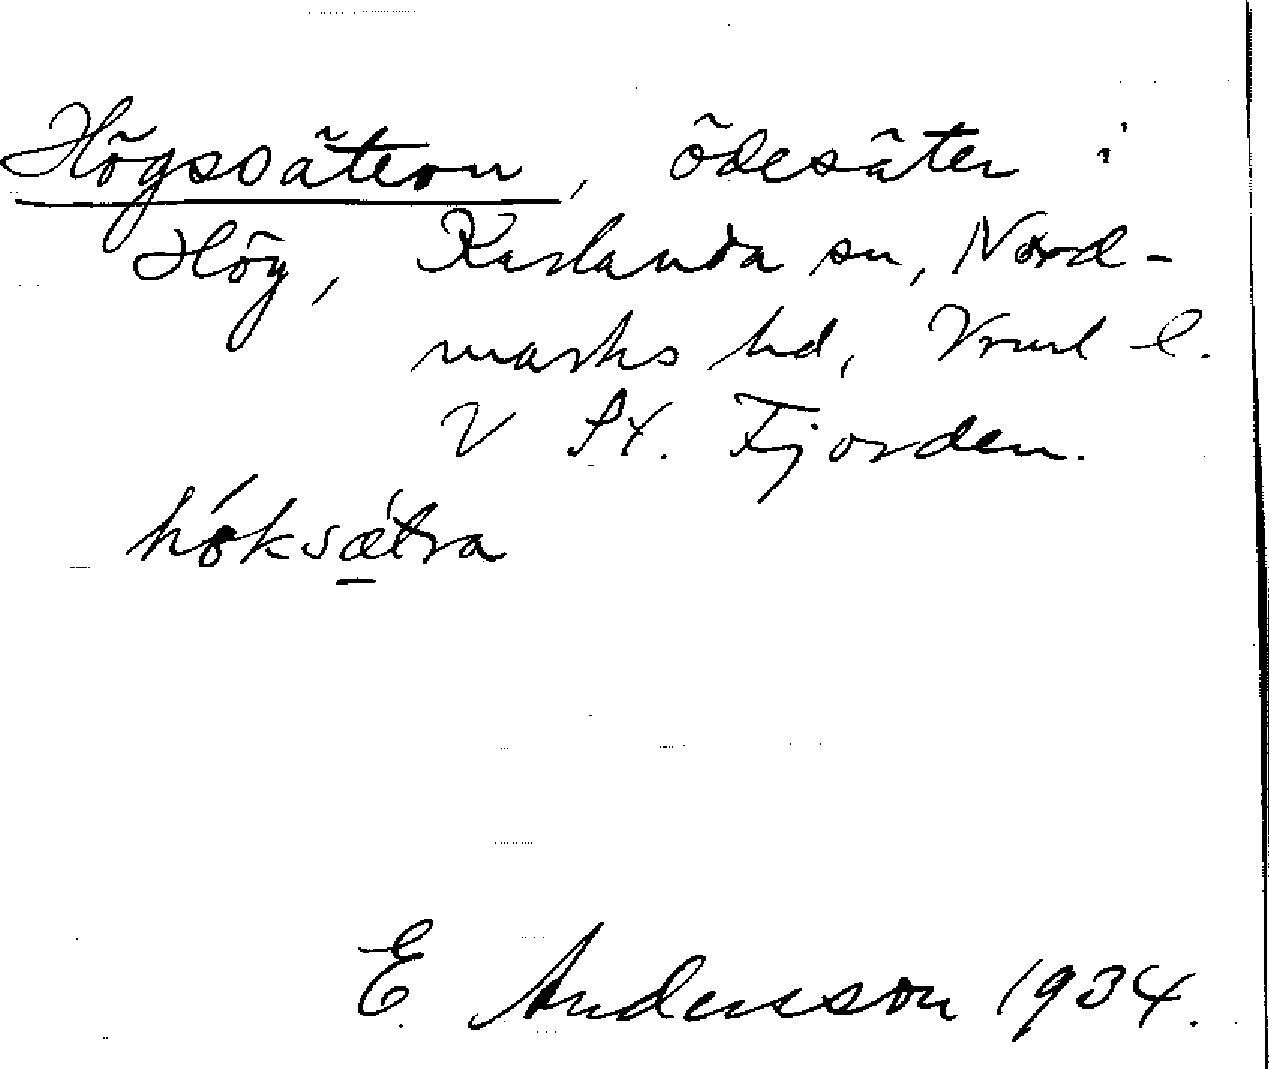 Högssätern, ödesäter i
Hög, Karlanda sn, Nord-
marks hd, Vrml l.
V St. Fjorden.
hóksǽtra
E. Andersson 1934.